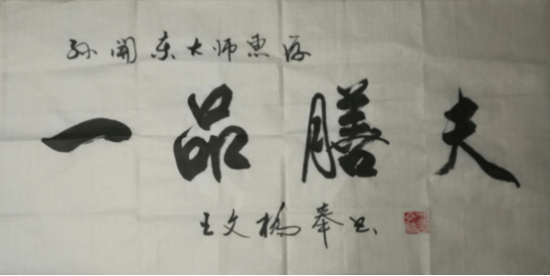 孙开东大师惠存
一品膳夫
王文桥奉书